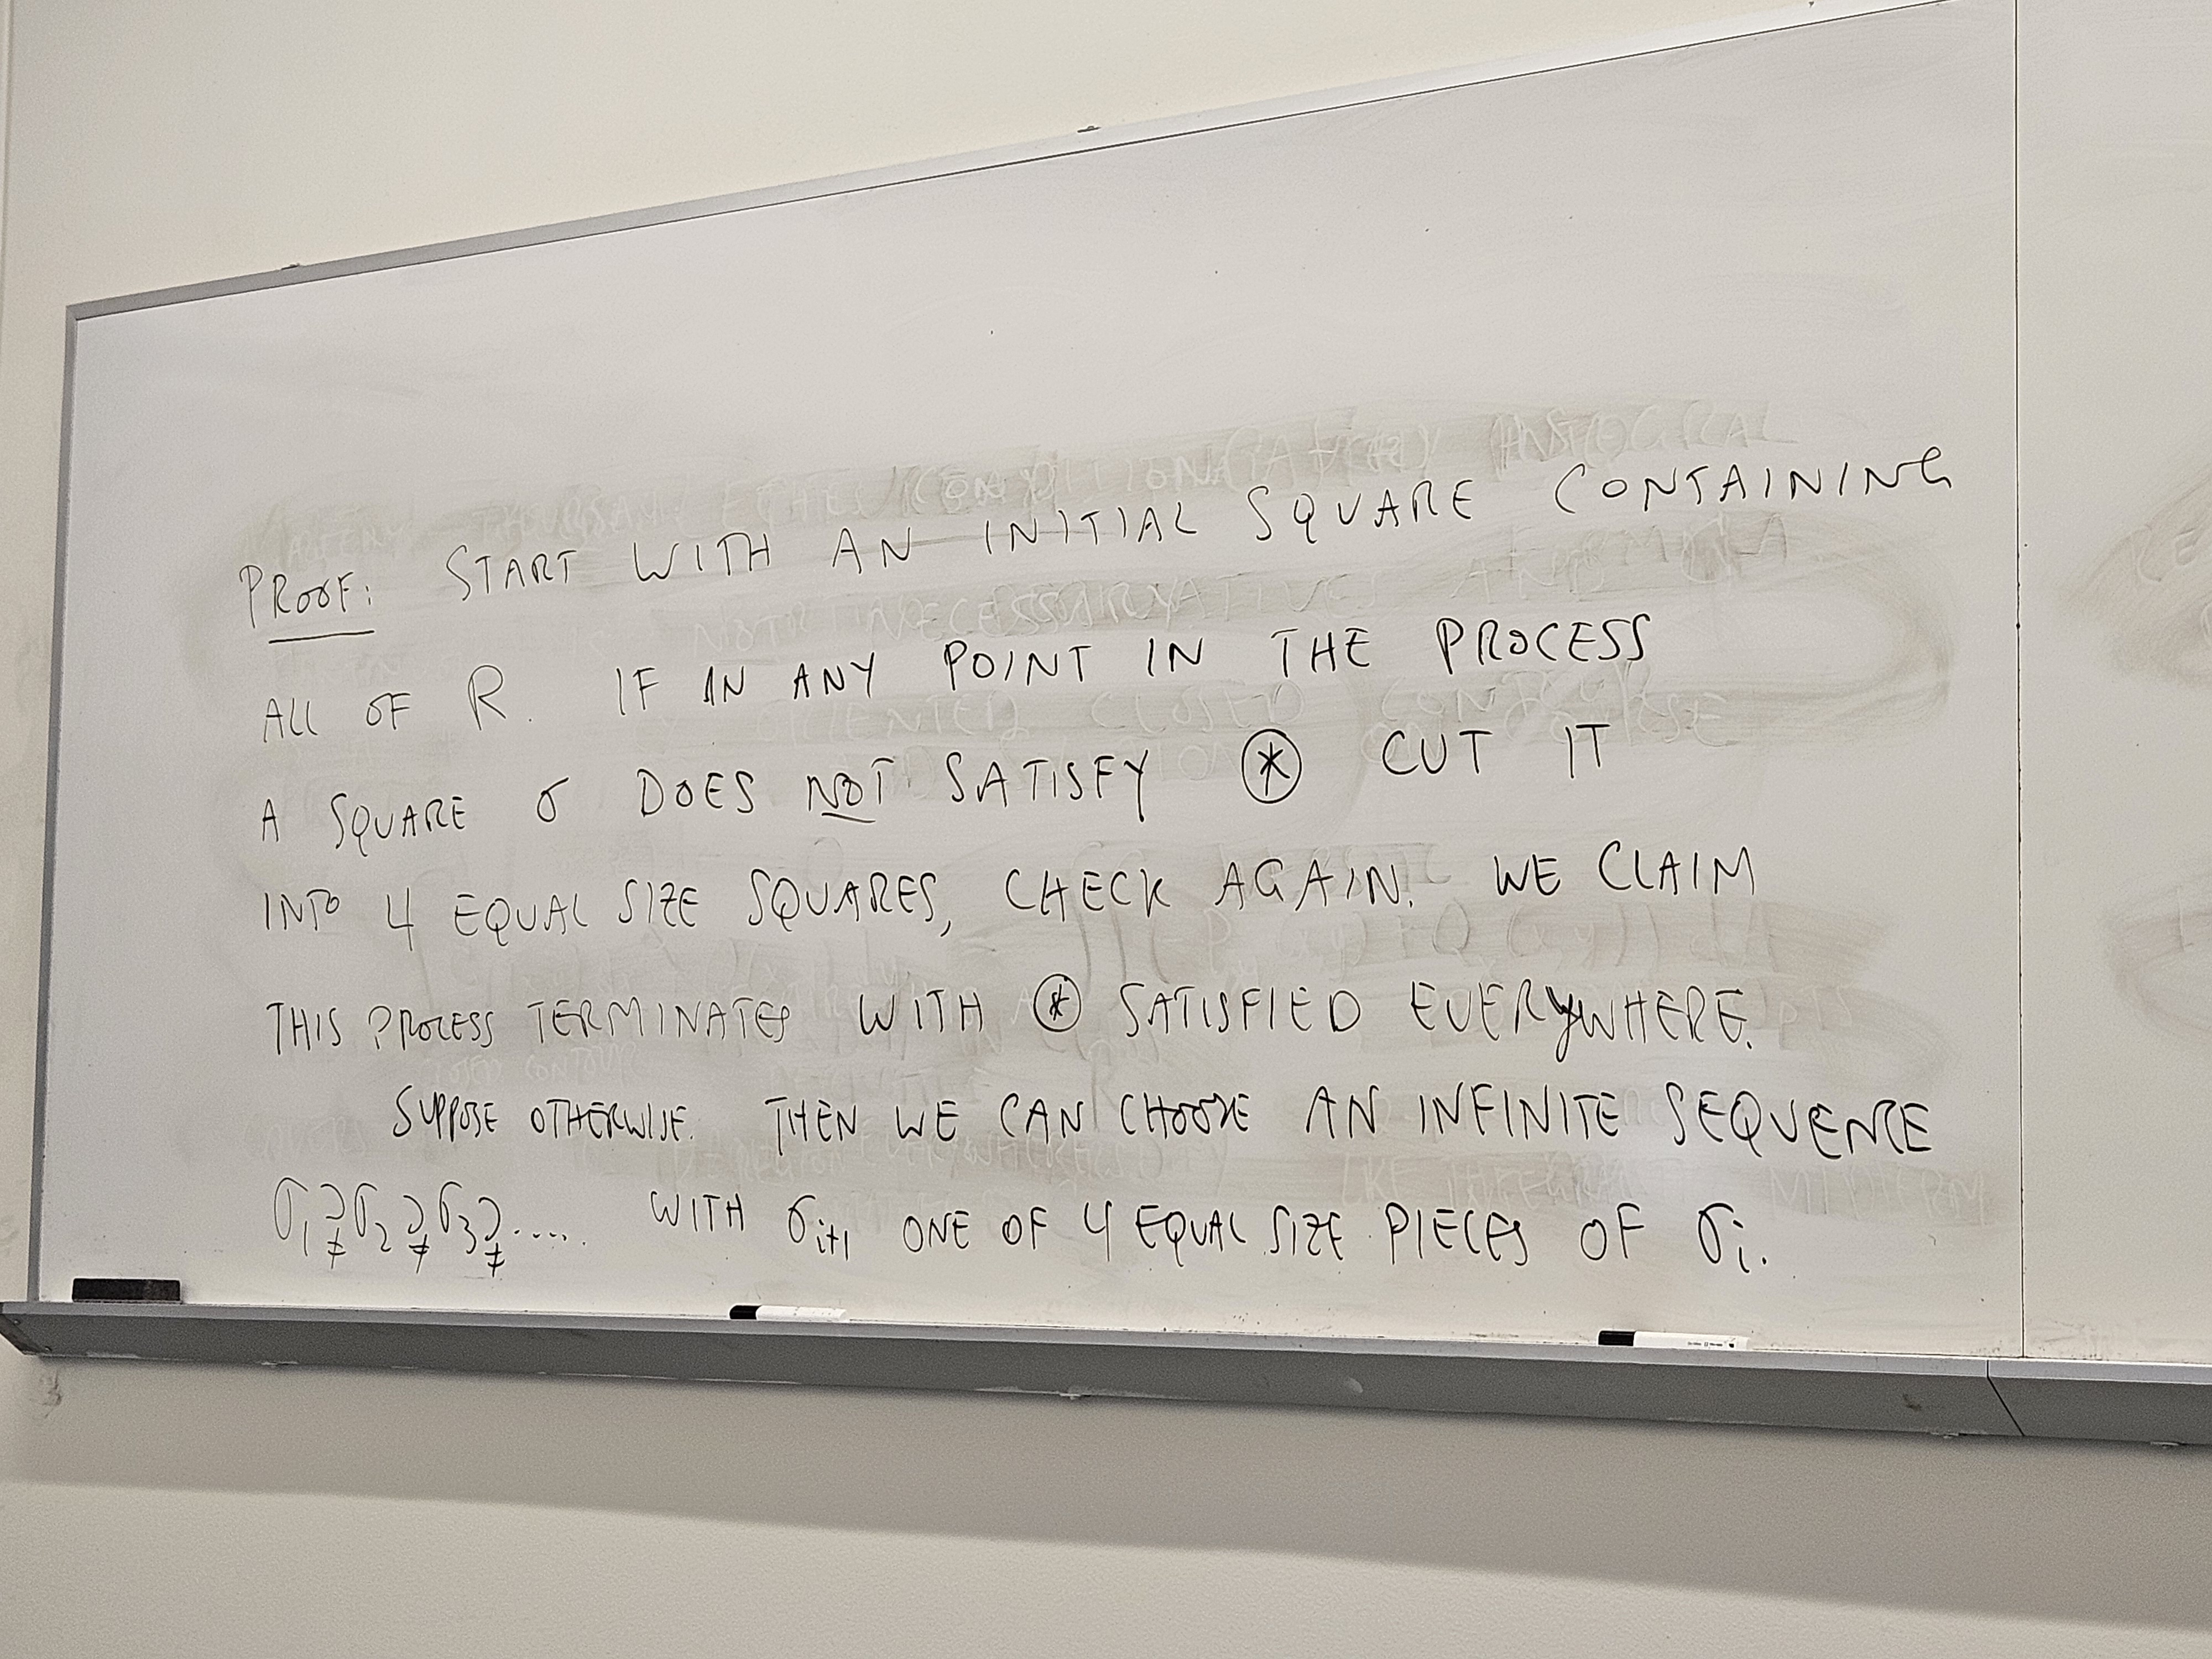 PROOF: START WITH AN INITIAL SQUARE CONTAINING
ALL OF R. IF IN ANY POINT IN THE PROCESS
A SQUARE σ DOES NOT SATISFY ⊛ CUT IT
INTO 4 EQUAL SIZE SQUARES, CHECK AGAIN. WE CLAIM
THIS PROCESS TERMINATES WITH ⊛ SATISFIED EVERYWHERE.
SUPPOSE OTHERWISE. THEN WE CAN CHOOSE AN INFINITE SEQUENCE
σ₁⊋σ₂⊋σ₃⊋..... WITH σᵢ₊₁ ONE OF 4 EQUAL SIZE PIECES OF σᵢ.